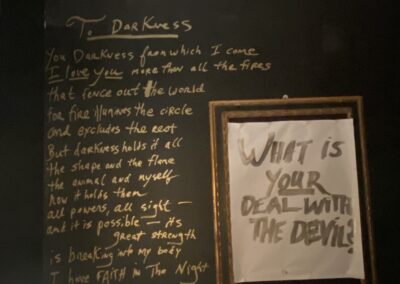 To Darkness
You Darkness from which I come
I love you more than all the fires
that fence out the world
for fire illumines the circle
and excludes the rest
But darkness holds it all
the shape and the flame
the animal and myself
how it holds them
all powers, all sight —
and it is possible — its
great strength
is breaking into my body
I have FAITH in The Night
WHAT IS
YOUR
DEAL WITH
THE DEVIL?